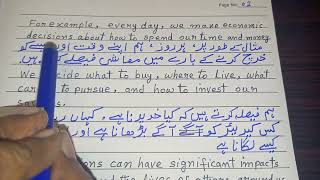 Page No. 02
For example, every day, we make economic
decisions about how to spend our time and money
مثال کے طور پر، ہر روز، ہم اپنے وقت اور پیسے کو
خرچ کرنے کے بارے میں معاشی فیصلے کرتے ہیں
We decide what to buy, where to live, what
to pursue, and how to invest our
ہم فیصلہ کرتے ہیں کہ کیا خریدنا ہے، کہاں رہنا
کس کیریئر کو آگے بڑھانا ہے اور
کیسے لگانا ہے
can have significant impacts
the lives of others around us